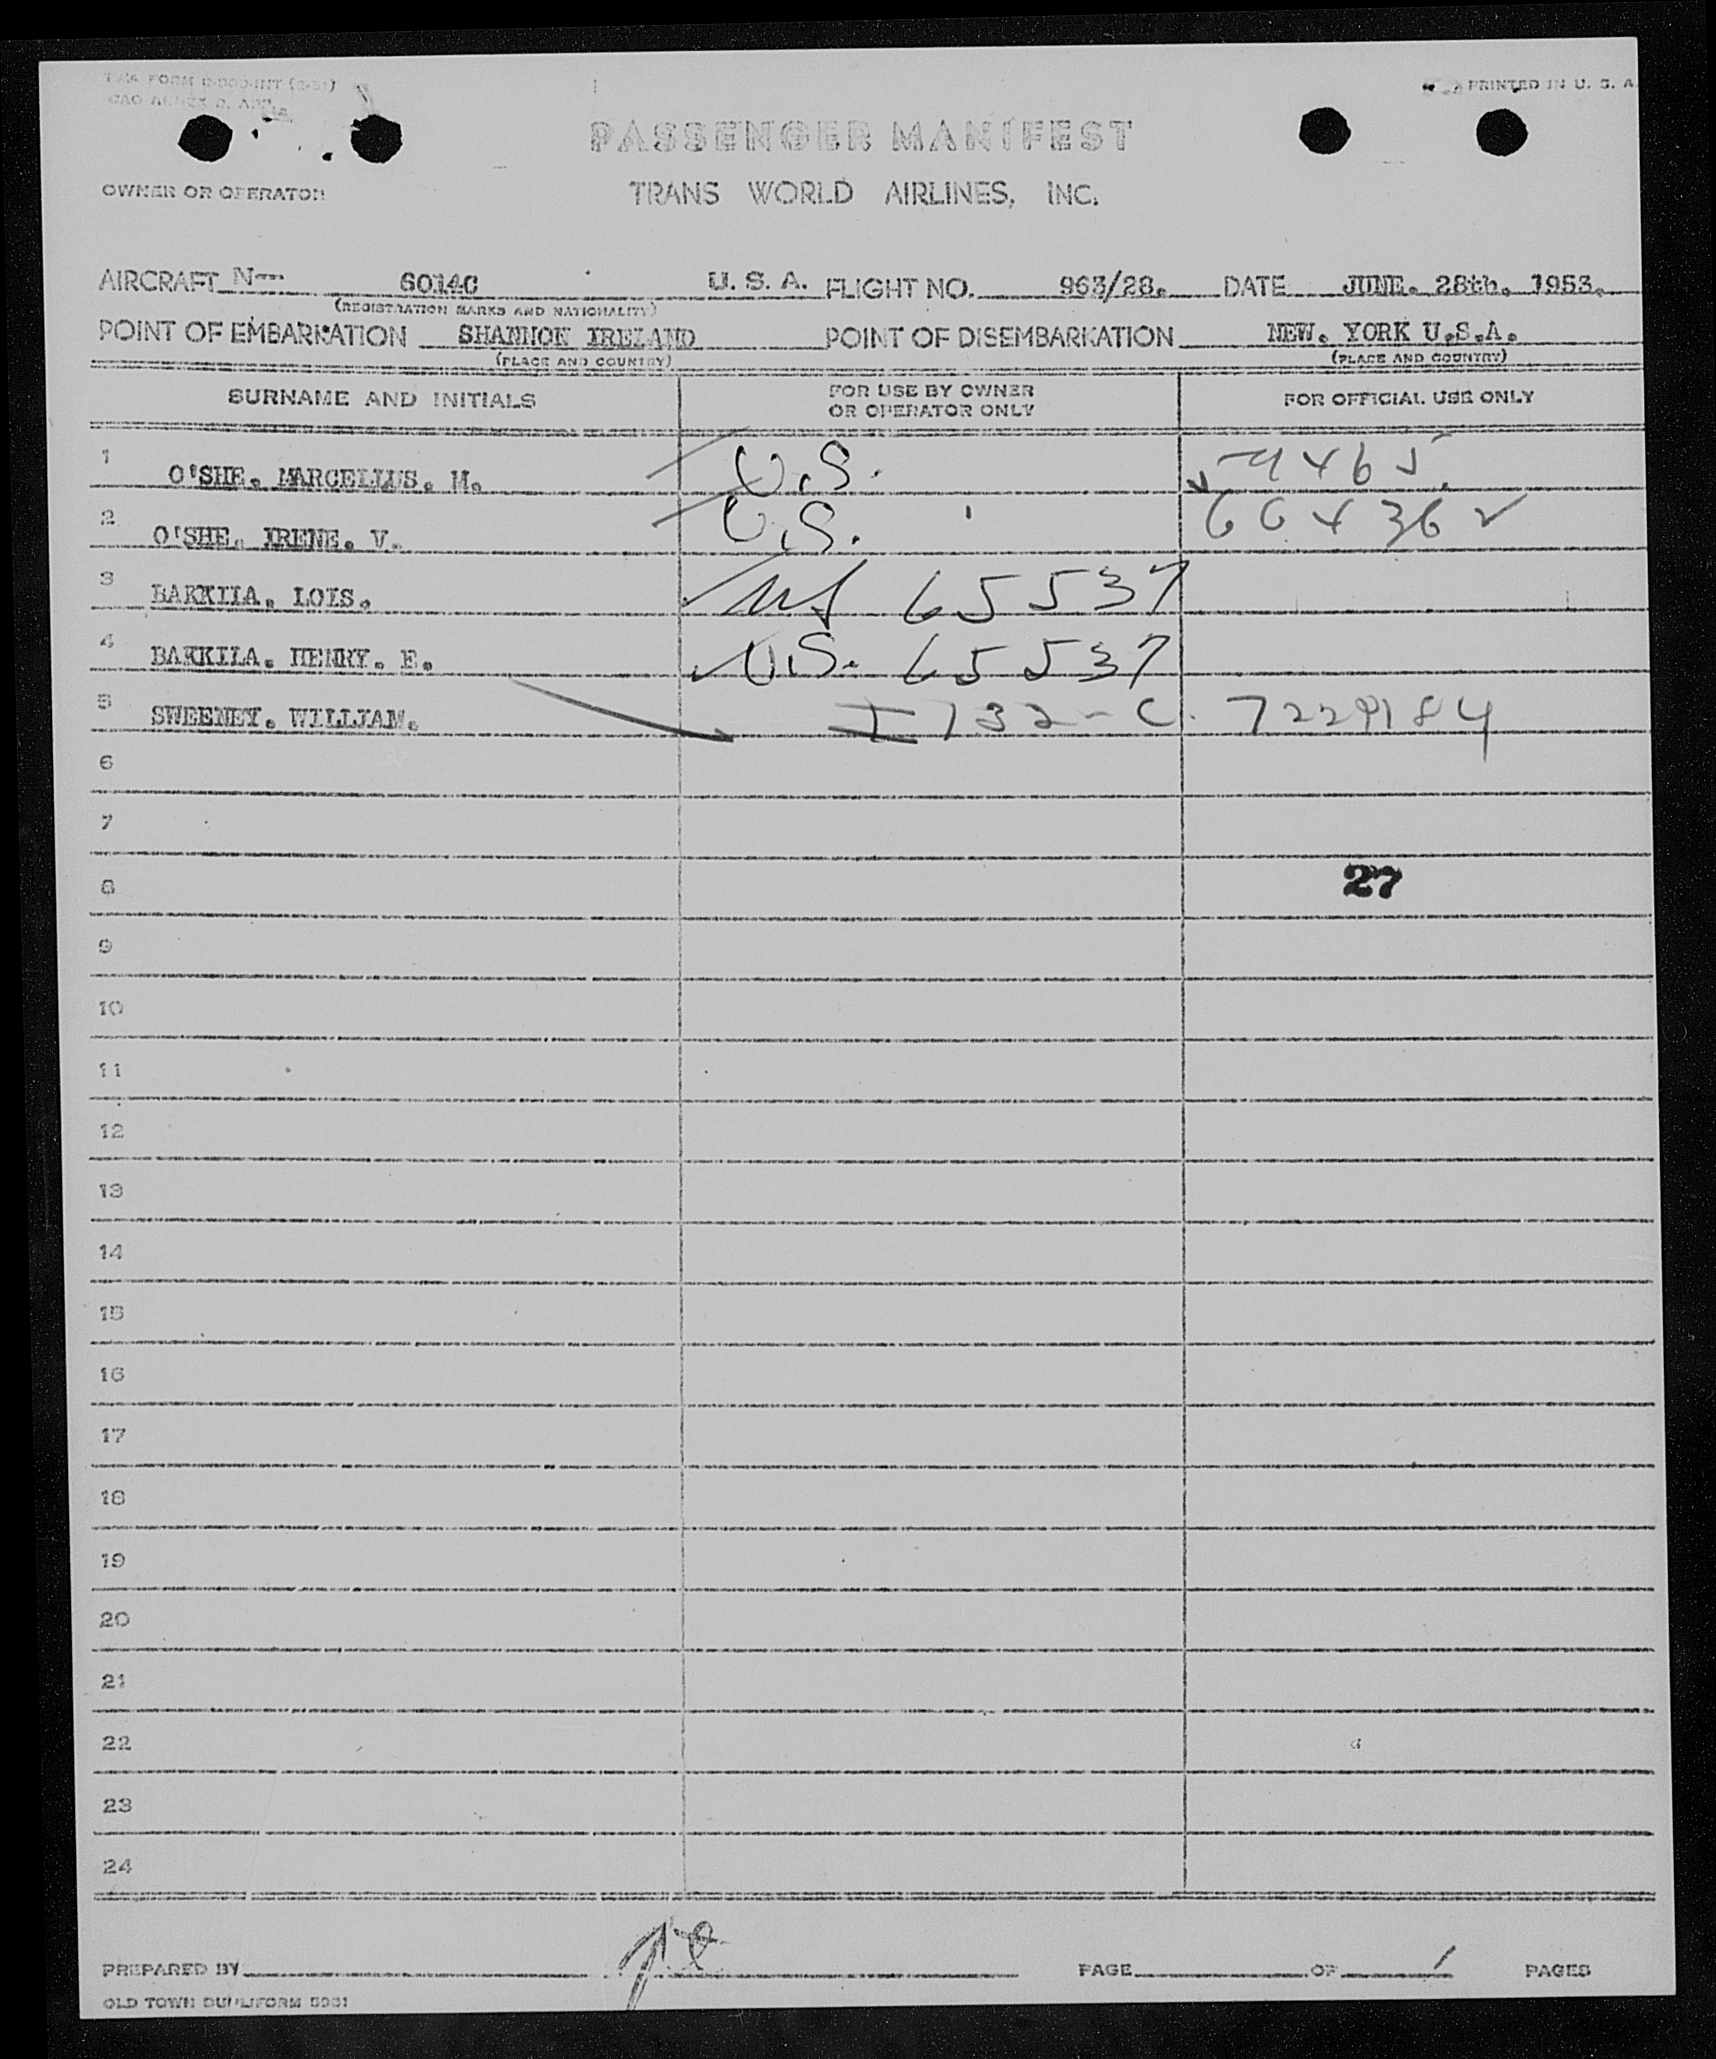 PRINTED IN U. S. A.
PASSENGER MANIFEST
OWNER OR OPERATOR TRANS WORLD AIRLINES, INC.
AIRCRAFT N 6014C U. S. A. FLIGHT NO. 963/28. DATE JUNE. 28th. 1953.
(REGISTRATION MARKS AND NATIONALITY)
POINT OF EMBARKATION SHANNON IRELAND POINT OF DISEMBARKATION NEW. YORK U.S.A.
(PLACE AND COUNTRY) (PLACE AND COUNTRY)
SURNAME AND INITIALS FOR USE BY OWNER OR OPERATOR ONLY FOR OFFICIAL USE ONLY
1 O'SHE. MARCELLUS. M. U.S. 4465
2 O'SHE. IRENE. V. U.S. 66436
3 BAKKILA. LOIS. US 65537
4 BAKKILA. HENRY. E. U.S. 65537
5 SWEENEY. WILLIAM. I 132-C. 7229184
6
7
8 27
9
10
11
12
13
14
15
16
17
18
19
20
21
22
23
24
PREPARED BY PAGE OF 1 PAGES
OLD TOWN DUPLIFORM 5931